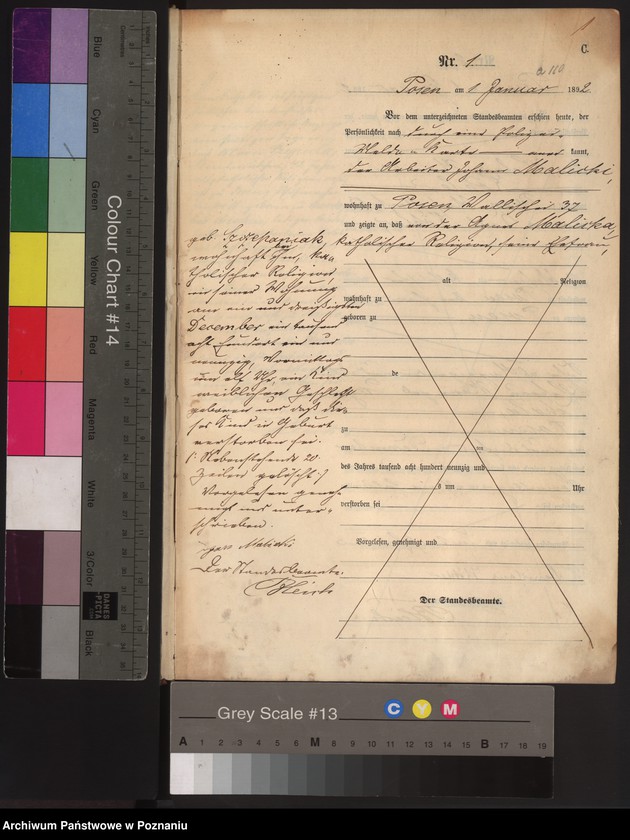 C.
Nr. 1.
Posen am 1 Januar 1892
Vor dem unterzeichneten Standesbeamten erschien heute, der
Persönlichkeit nach durch eine Polizei-
Melde-Karte aner kannt,
der Arbeiter Johann Malicki,
wohnhaft zu Posen Wallischei 37
und zeigte an, daß von der Agnes Malicka,
geb. Szczepaniak,
katholischer Religion, seine Ehefrau,
wohnhaft bei ihm, ka-
tholischer Religion,
in seiner Wohnung
am ein und dreißigsten
December ein tausend
acht hundert ein und
neunzig, Vormittags
um elf Uhr, ein Kind
weiblichen Geschlechts
geboren und daß die-
ses Kind in Geburt
verstorben sei.
Nebenstehende 20
Zeilen gelöscht.
Vorgelesen geneh-
migt und unter-
schrieben.
Malicki
Der Standesbeamte.
alt Religion
wohnhaft zu
geboren zu
de
zu
am
des Jahres tausend acht hundert neunzig und
s um Uhr
verstorben sei
Vorgelesen, genehmigt und
Der Standesbeamte.
Colour Chart #14
Blue
Cyan
Green
Yellow
Red
Magenta
White
3/Color
Black
Centimetres
Inches
DANES
-PICTA
Grey Scale #13
C Y M
A 1 2 3 4 5 6 M 8 9 10 11 12 13 14 15 B 17 18 19
Archiwum Państwowe w Poznaniu